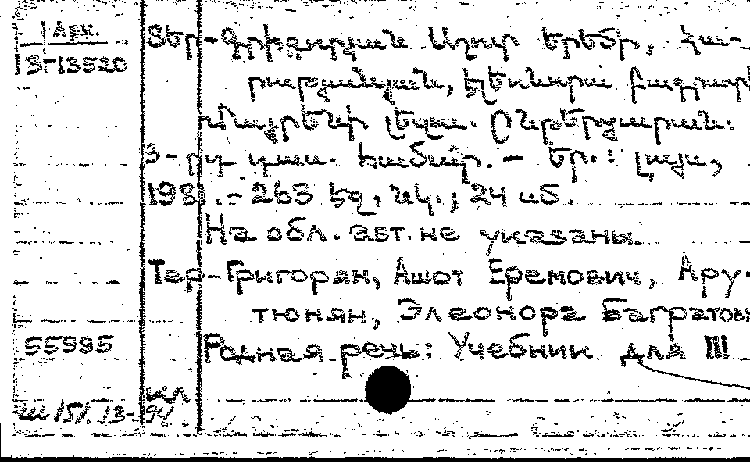 1 Арм.
З-13520
Տեր-Գրիգորյան Աշոտ Երեմի, Հա-
րություն­յան, Էլեոնորա Բագրատի
Մայրենի լեզու. Ընթերցարան:
3-րդ դաս. համար. — Եր.: Լույս,
198 .- 263 էջ, նկ.; 24 սմ.
На обл. авт. не указаны.
Тер-Григорян, Ашот Еремович, Ару-
тюнян, Элеонора Багратовн
55985
Родная речь: Учебник для III
кл